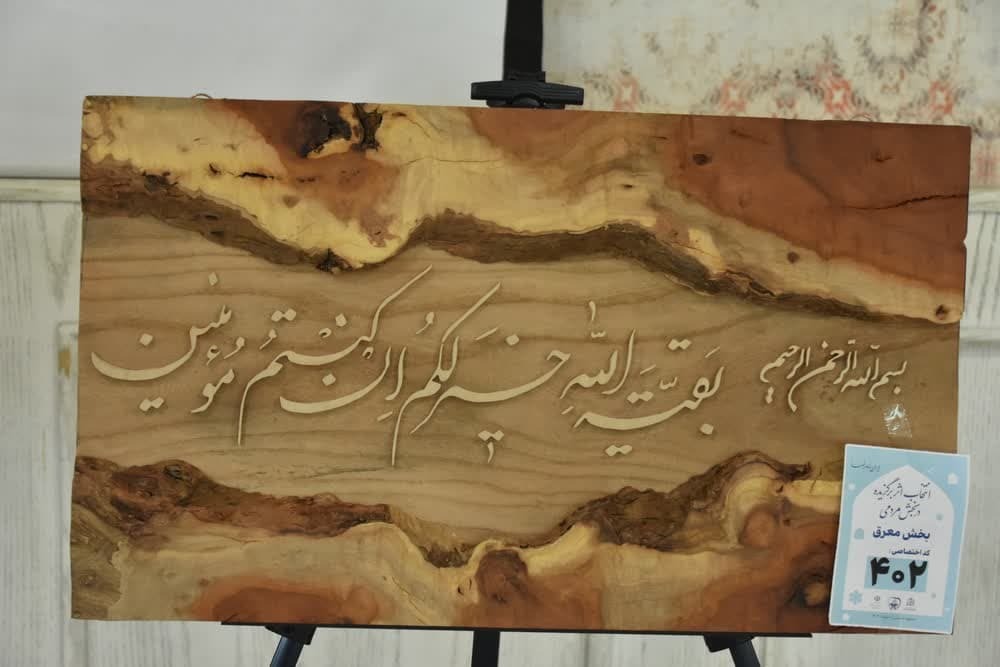 بسم الله الرحمن الرحیم
بَقیَّة اللهِ خَیرلکُم اِن کنتُم مُؤمنین
انتخاب اثر برگزیده
در بخش مردمی
بخش معرق
کد اختصاصی:
۴۰۲